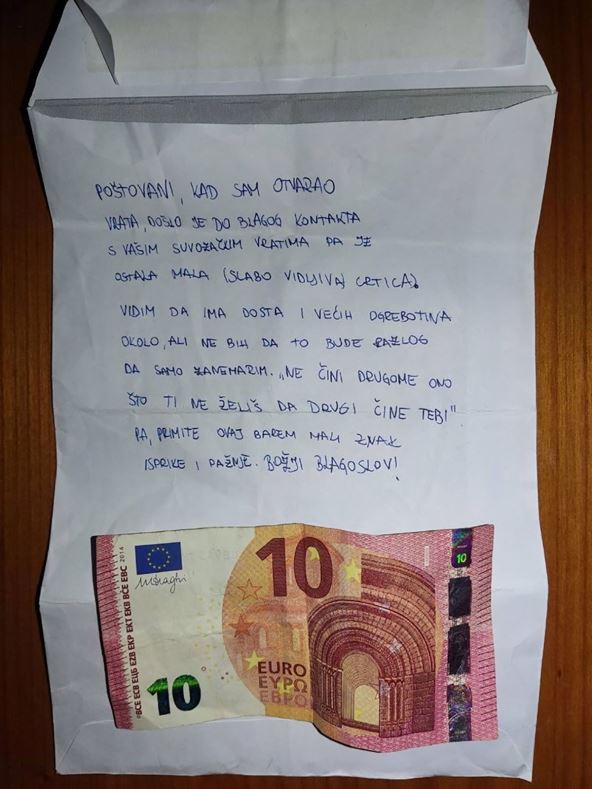 POŠTOVANI, KAD SAM OTVARAO
VRATA, DOŠLO JE DO BLAGOG KONTAKTA
S VAŠIM SUVOZAČKIM VRATIMA PA JE
OSTALA MALA (SLABO VIDLJIVA) CRTICA).
VIDIM DA IMA DOSTA I VEĆIH OGREBOTINA
OKOLO, ALI NE BIH DA TO BUDE RAZLOG
DA SAMO ZANEMARIM. „NE ČINI DRUGOME ONO
ŠTO TI NE ŽELIŠ DA DRUGI ČINE TEBI".
PA, PRIMITE OVAJ BAREM MALI ZNAK
ISPRIKE I PAŽNJE. BOŽJI BLAGOSLOV!
BCE ECB ЕЦБ EZB EKP EKT EKB BĊE EBC 2014
10
10
10
EURO
ΕΥΡΩ
ЕВРО